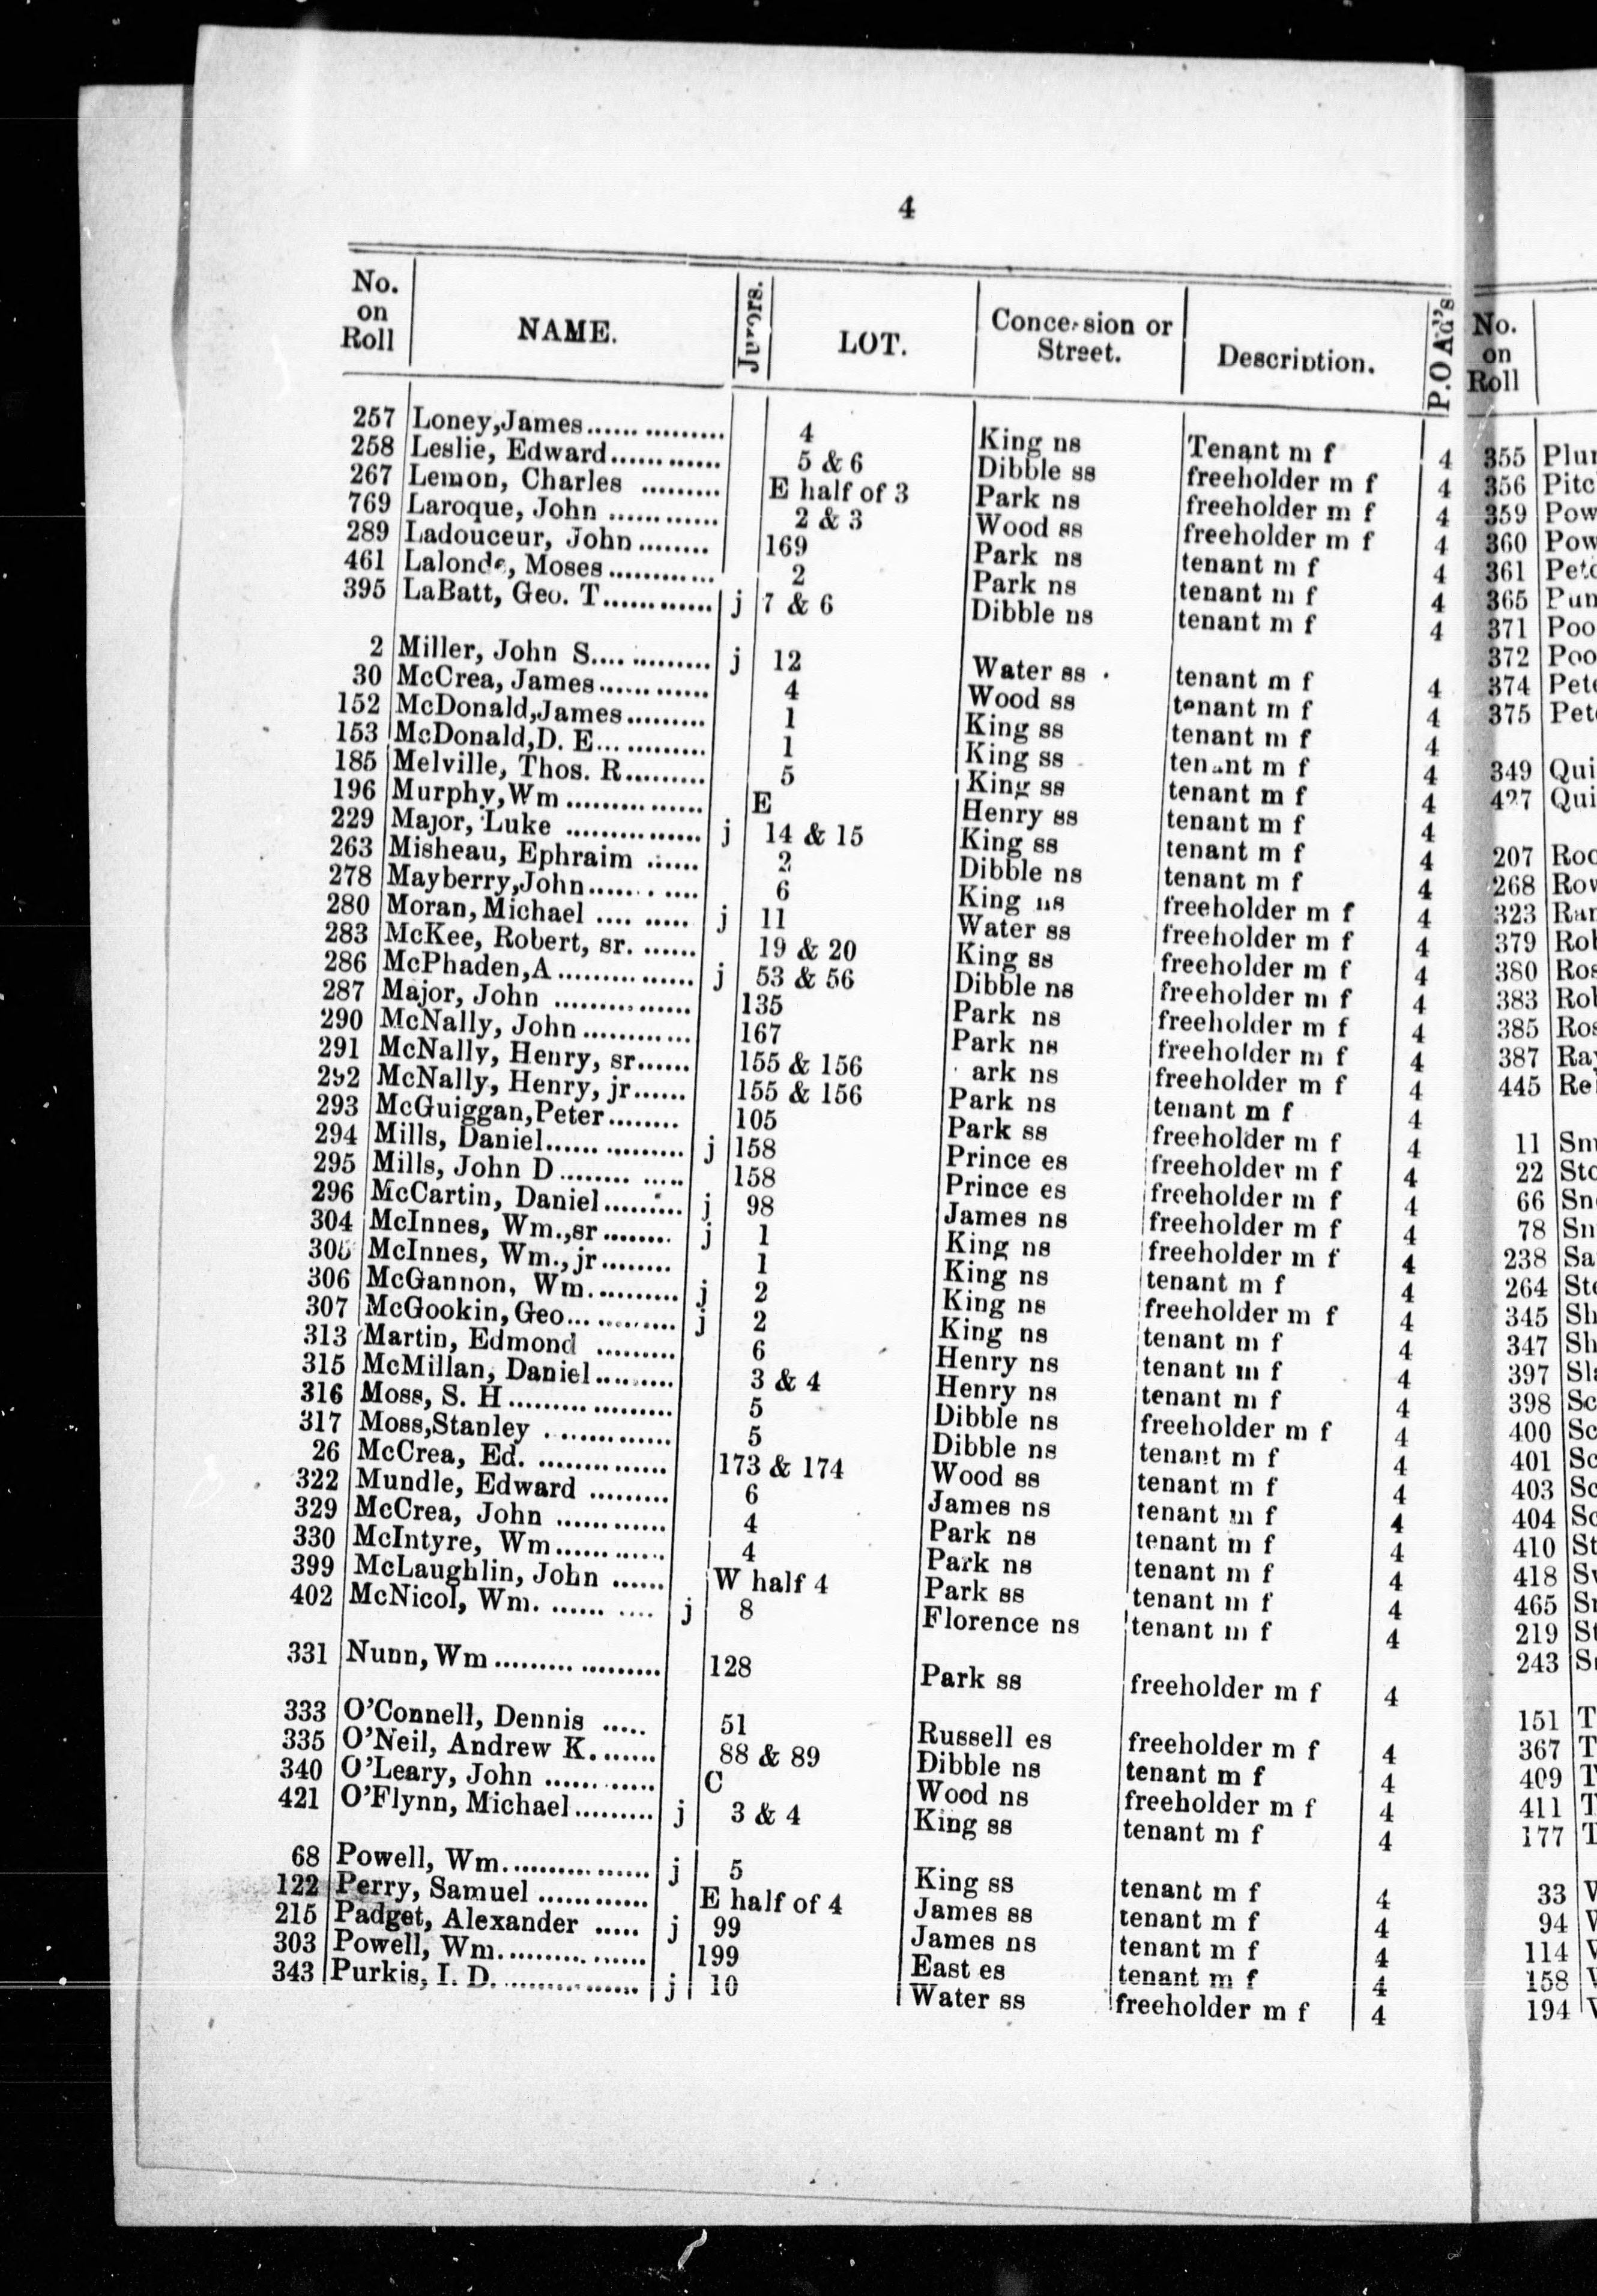 4
No. on Roll NAME. Jurors. LOT. Concession or Street. Description. P.O Ad's
257 Loney,James.................. 4 King ns Tenant m f 4
258 Leslie, Edward............ 5 & 6 Dibble ss freeholder m f 4
267 Lemon, Charles ......... E half of 3 Park ns freeholder m f 4
769 Laroque, John ............ 2 & 3 Wood ss freeholder m f 4
289 Ladouceur, John........ 169 Park ns tenant m f 4
461 Lalonde, Moses............ 2 Park ns tenant m f 4
395 LaBatt, Geo. T............ j 7 & 6 Dibble ns tenant m f 4
2 Miller, John S............. j 12 Water ss tenant m f 4
30 McCrea, James............ 4 Wood ss tenant m f 4
152 McDonald,James......... 1 King ss tenant m f 4
153 McDonald,D. E............ 1 King ss tenant m f 4
185 Melville, Thos. R......... 5 King ss tenant m f 4
196 Murphy,Wm ............... E Henry ss tenant m f 4
229 Major, Luke ............... j 14 & 15 King ss tenant m f 4
263 Misheau, Ephraim ...... 2 Dibble ns tenant m f 4
278 Mayberry,John............ 6 King ns freeholder m f 4
280 Moran, Michael ......... j 11 Water ss freeholder m f 4
283 McKee, Robert, sr. ...... 19 & 20 King ss freeholder m f 4
286 McPhaden,A............... j 53 & 56 Dibble ns freeholder m f 4
287 Major, John ............... 135 Park ns freeholder m f 4
290 McNally, John............ 167 Park ns freeholder m f 4
291 McNally, Henry, sr...... 155 & 156 ark ns freeholder m f 4
292 McNally, Henry, jr...... 155 & 156 Park ns tenant m f 4
293 McGuiggan,Peter......... 105 Park ss freeholder m f 4
294 Mills, Daniel............... j 158 Prince es freeholder m f 4
295 Mills, John D.............. 158 Prince es freeholder m f 4
296 McCartin, Daniel......... j 98 James ns freeholder m f 4
304 McInnes, Wm.,sr ........ j 1 King ns freeholder m f 4
305 McInnes, Wm.,jr........ 1 King ns tenant m f 4
306 McGannon, Wm.......... j 2 King ns freeholder m f 4
307 McGookin,Geo............ j 2 King ns tenant m f 4
313 Martin, Edmond ......... 6 Henry ns tenant m f 4
315 McMillan, Daniel......... 3 & 4 Henry ns tenant m f 4
316 Moss, S. H.................. 5 Dibble ns freeholder m f 4
317 Moss,Stanley .............. 5 Dibble ns tenant m f 4
26 McCrea, Ed. ............... 173 & 174 Wood ss tenant m f 4
322 Mundle, Edward ......... 6 James ns tenant m f 4
329 McCrea, John ............ 4 Park ns tenant m f 4
330 McIntyre, Wm............ 4 Park ns tenant m f 4
399 McLaughlin, John ...... W half 4 Park ss tenant m f 4
402 McNicol, Wm. .......... j 8 Florence ns tenant m f 4
331 Nunn, Wm.................. 128 Park ss freeholder m f 4
333 O'Connell, Dennis ..... 51 Russell es freeholder m f 4
335 O'Neil, Andrew K....... 88 & 89 Dibble ns tenant m f 4
340 O'Leary, John ............ C Wood ns freeholder m f 4
421 O'Flynn, Michael......... j 3 & 4 King ss tenant m f 4
68 Powell, Wm................ j 5 King ss tenant m f 4
122 Perry, Samuel ............ E half of 4 James ss tenant m f 4
215 Padget, Alexander ..... j 99 James ns tenant m f 4
303 Powell, Wm................ 199 East es tenant m f 4
343 Purkis, I. D................. j 10 Water ss freeholder m f 4
No. on Roll
355 Plu
356 Pitc
359 Pow
360 Pow
361 Pet
365 Pun
371 Poo
372 Poo
374 Pet
375 Pet
349 Qui
427 Qui
207 Roc
268 Rov
323 Ran
379 Rob
380 Ros
383 Rob
385 Ros
387 Ray
445 Re
11 Sm
22 Sto
66 Sn
78 Sn
238 Sa
264 Ste
345 Sh
347 Sh
397 Sla
398 Sc
400 Sc
401 Sc
403 Sc
404 Sc
410 St
418 Sv
465 S
219 St
243 S
151 T
367 T
409 T
411 T
177 T
33
94
114
158
194